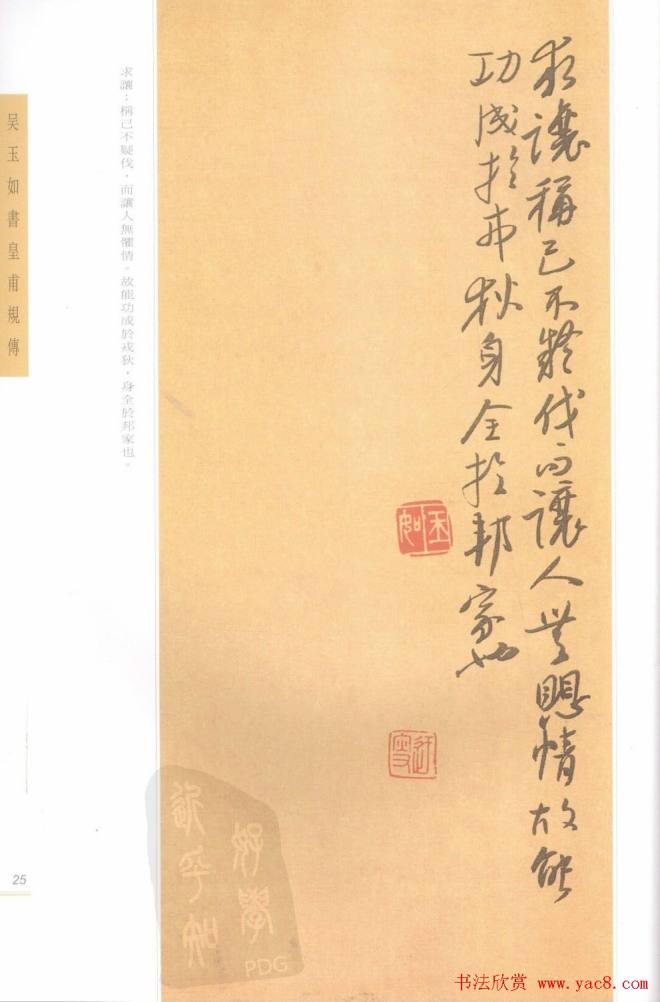 求讓稱己不疑伐而讓人無懼情故能
功成於戎狄身全於邦家也
玉如
迂叟
求讓；稱己不疑伐，而讓人無懼情。故能功成於戎狄，身全於邦家也。
吴玉如書皇甫規傳
25
好學
近乎知
PDG
书法欣赏 www.yac8.com